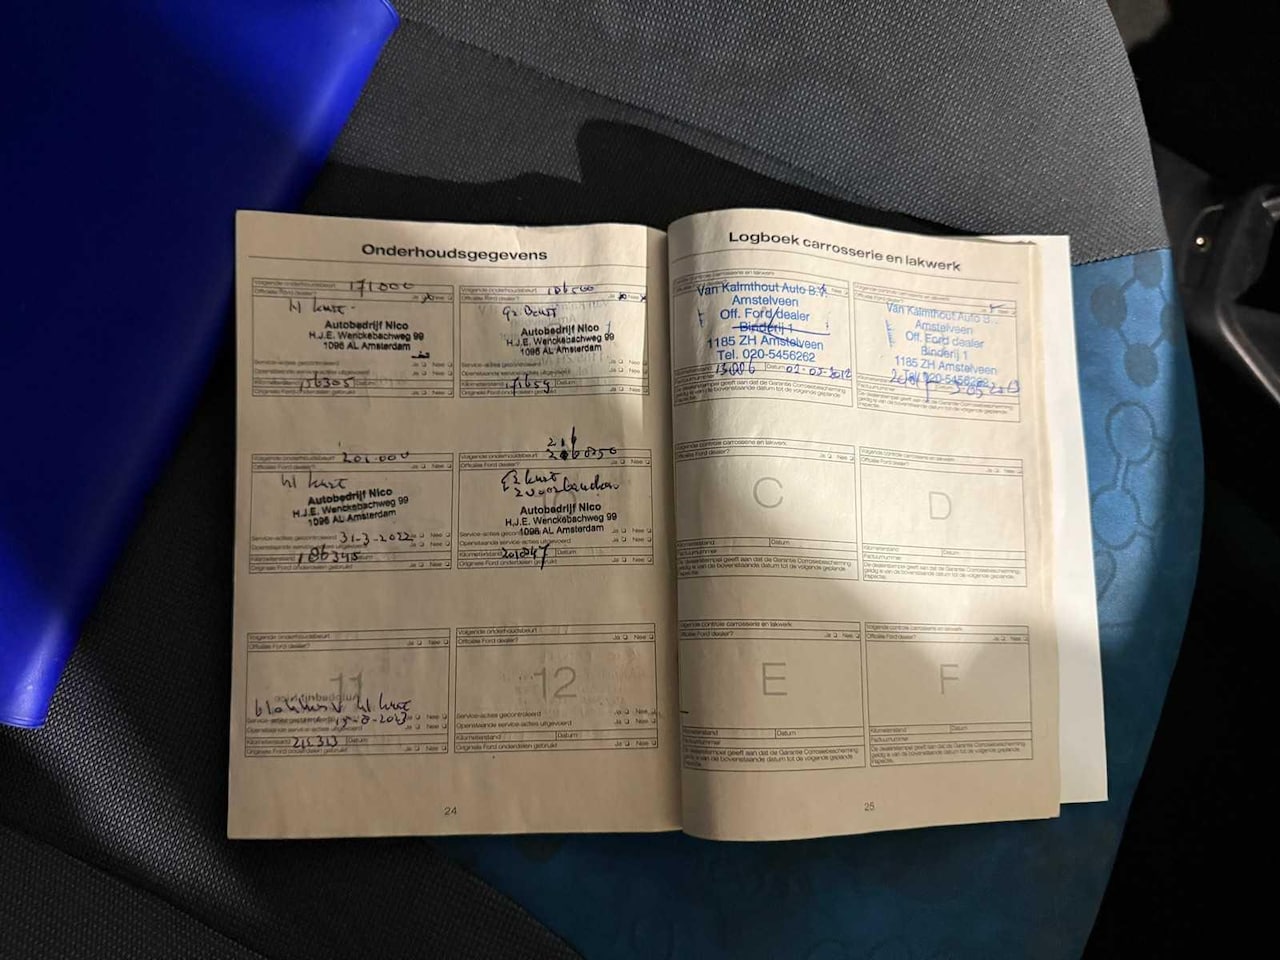 Onderhoudsgegevens
Volgende onderhoudsbeurt 171000
Officiële Ford dealer? Ja Nee
Autobedrijf Nico
H.J.E. Wenckebachweg 99
1096 AL Amsterdam
Service-acties gecontroleerd Ja Nee
Openstaande service-acties uitgevoerd Ja Nee
Kilometerstand 156305 Datum
Originele Ford onderdelen gebruikt Ja Nee
Volgende onderhoudsbeurt 186500
Officiële Ford dealer? Ja Nee
Autobedrijf Nico
H.J.E. Wenckebachweg 99
1096 AL Amsterdam
Service-acties gecontroleerd Ja Nee
Openstaande service-acties uitgevoerd Ja Nee
Kilometerstand 171659 Datum
Originele Ford onderdelen gebruikt Ja Nee
Volgende onderhoudsbeurt 201.000
Officiële Ford dealer? Ja Nee
Autobedrijf Nico
H.J.E. Wenckebachweg 99
1096 AL Amsterdam
Service-acties gecontroleerd 31-3-2022 Ja Nee
Openstaande service-acties uitgevoerd Ja Nee
Kilometerstand 186345 Datum
Originele Ford onderdelen gebruikt Ja Nee
Volgende onderhoudsbeurt
Officiële Ford dealer? Ja Nee
Autobedrijf Nico
H.J.E. Wenckebachweg 99
1096 AL Amsterdam
Service-acties gecontroleerd Ja Nee
Openstaande service-acties uitgevoerd Ja Nee
Kilometerstand 201047 Datum
Originele Ford onderdelen gebruikt Ja Nee
Volgende onderhoudsbeurt
Officiële Ford dealer? Ja Nee
11
Service-acties gecontroleerd Ja Nee
Openstaande service-acties uitgevoerd Ja Nee
Kilometerstand 215313 Datum
Originele Ford onderdelen gebruikt Ja Nee
Volgende onderhoudsbeurt
Officiële Ford dealer? Ja Nee
12
Service-acties gecontroleerd Ja Nee
Openstaande service-acties uitgevoerd Ja Nee
Kilometerstand Datum
Originele Ford onderdelen gebruikt Ja Nee
24
Logboek carrosserie en lakwerk
Van Kalmthout Auto B.V.
Amstelveen
Off. Ford dealer
Binderij 1
1185 ZH Amstelveen
Tel. 020-5456262
Kilometerstand Datum 02-05-2012
Factuurnummer
De dealerstempel geeft aan dat de Garantie Carrosseriebescherming
geldig is van de bovenstaande datum tot de volgende geplande
inspectie.
Volgende controle carrosserie en lakwerk
Van Kalmthout Auto B.
Amstelveen
Off. Ford dealer
Binderij 1
1185 ZH Amstelveen
Tel. 020-5456262
Factuurnummer
De dealerstempel geeft aan dat de Garantie Carrosseriebescherming
geldig is van de bovenstaande datum tot de volgende geplande
inspectie.
Volgende controle carrosserie en lakwerk
Officiële Ford dealer? Ja Nee
C
Kilometerstand Datum
Factuurnummer
De dealerstempel geeft aan dat de Garantie Carrosseriebescherming
geldig is van de bovenstaande datum tot de volgende geplande
inspectie.
Volgende controle carrosserie en lakwerk
Officiële Ford dealer? Ja Nee
D
Kilometerstand Datum
Factuurnummer
De dealerstempel geeft aan dat de Garantie Carrosseriebescherming
geldig is van de bovenstaande datum tot de volgende geplande
inspectie.
Volgende controle carrosserie en lakwerk
Officiële Ford dealer? Ja Nee
E
Kilometerstand Datum
Factuurnummer
De dealerstempel geeft aan dat de Garantie Carrosseriebescherming
geldig is van de bovenstaande datum tot de volgende geplande
inspectie.
Volgende controle carrosserie en lakwerk
Officiële Ford dealer? Ja Nee
F
Kilometerstand Datum
Factuurnummer
De dealerstempel geeft aan dat de Garantie Carrosseriebescherming
geldig is van de bovenstaande datum tot de volgende geplande
inspectie.
25